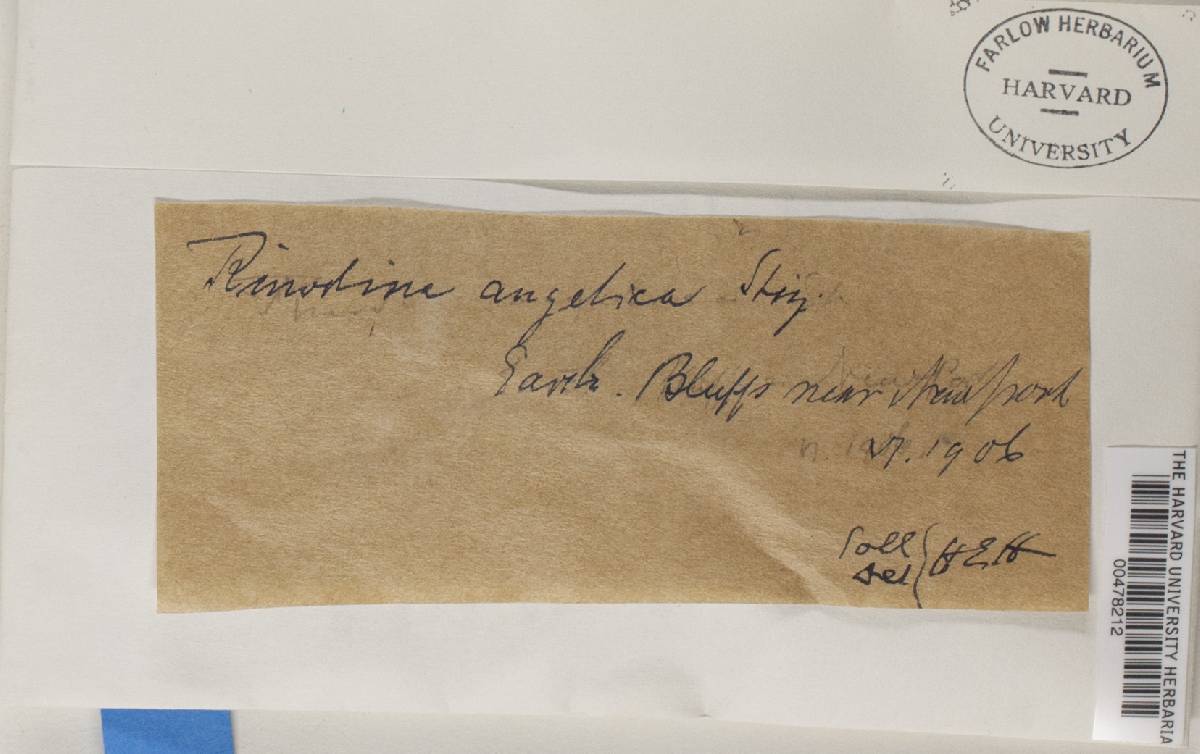 FARLOW HERBARIUM
HARVARD
UNIVERSITY
Rinodina angelica Stiz.
Earth. Bluffs near Newport
1906
Coll
Det { H E H
THE HARVARD UNIVERSITY HERBARIA
00478212